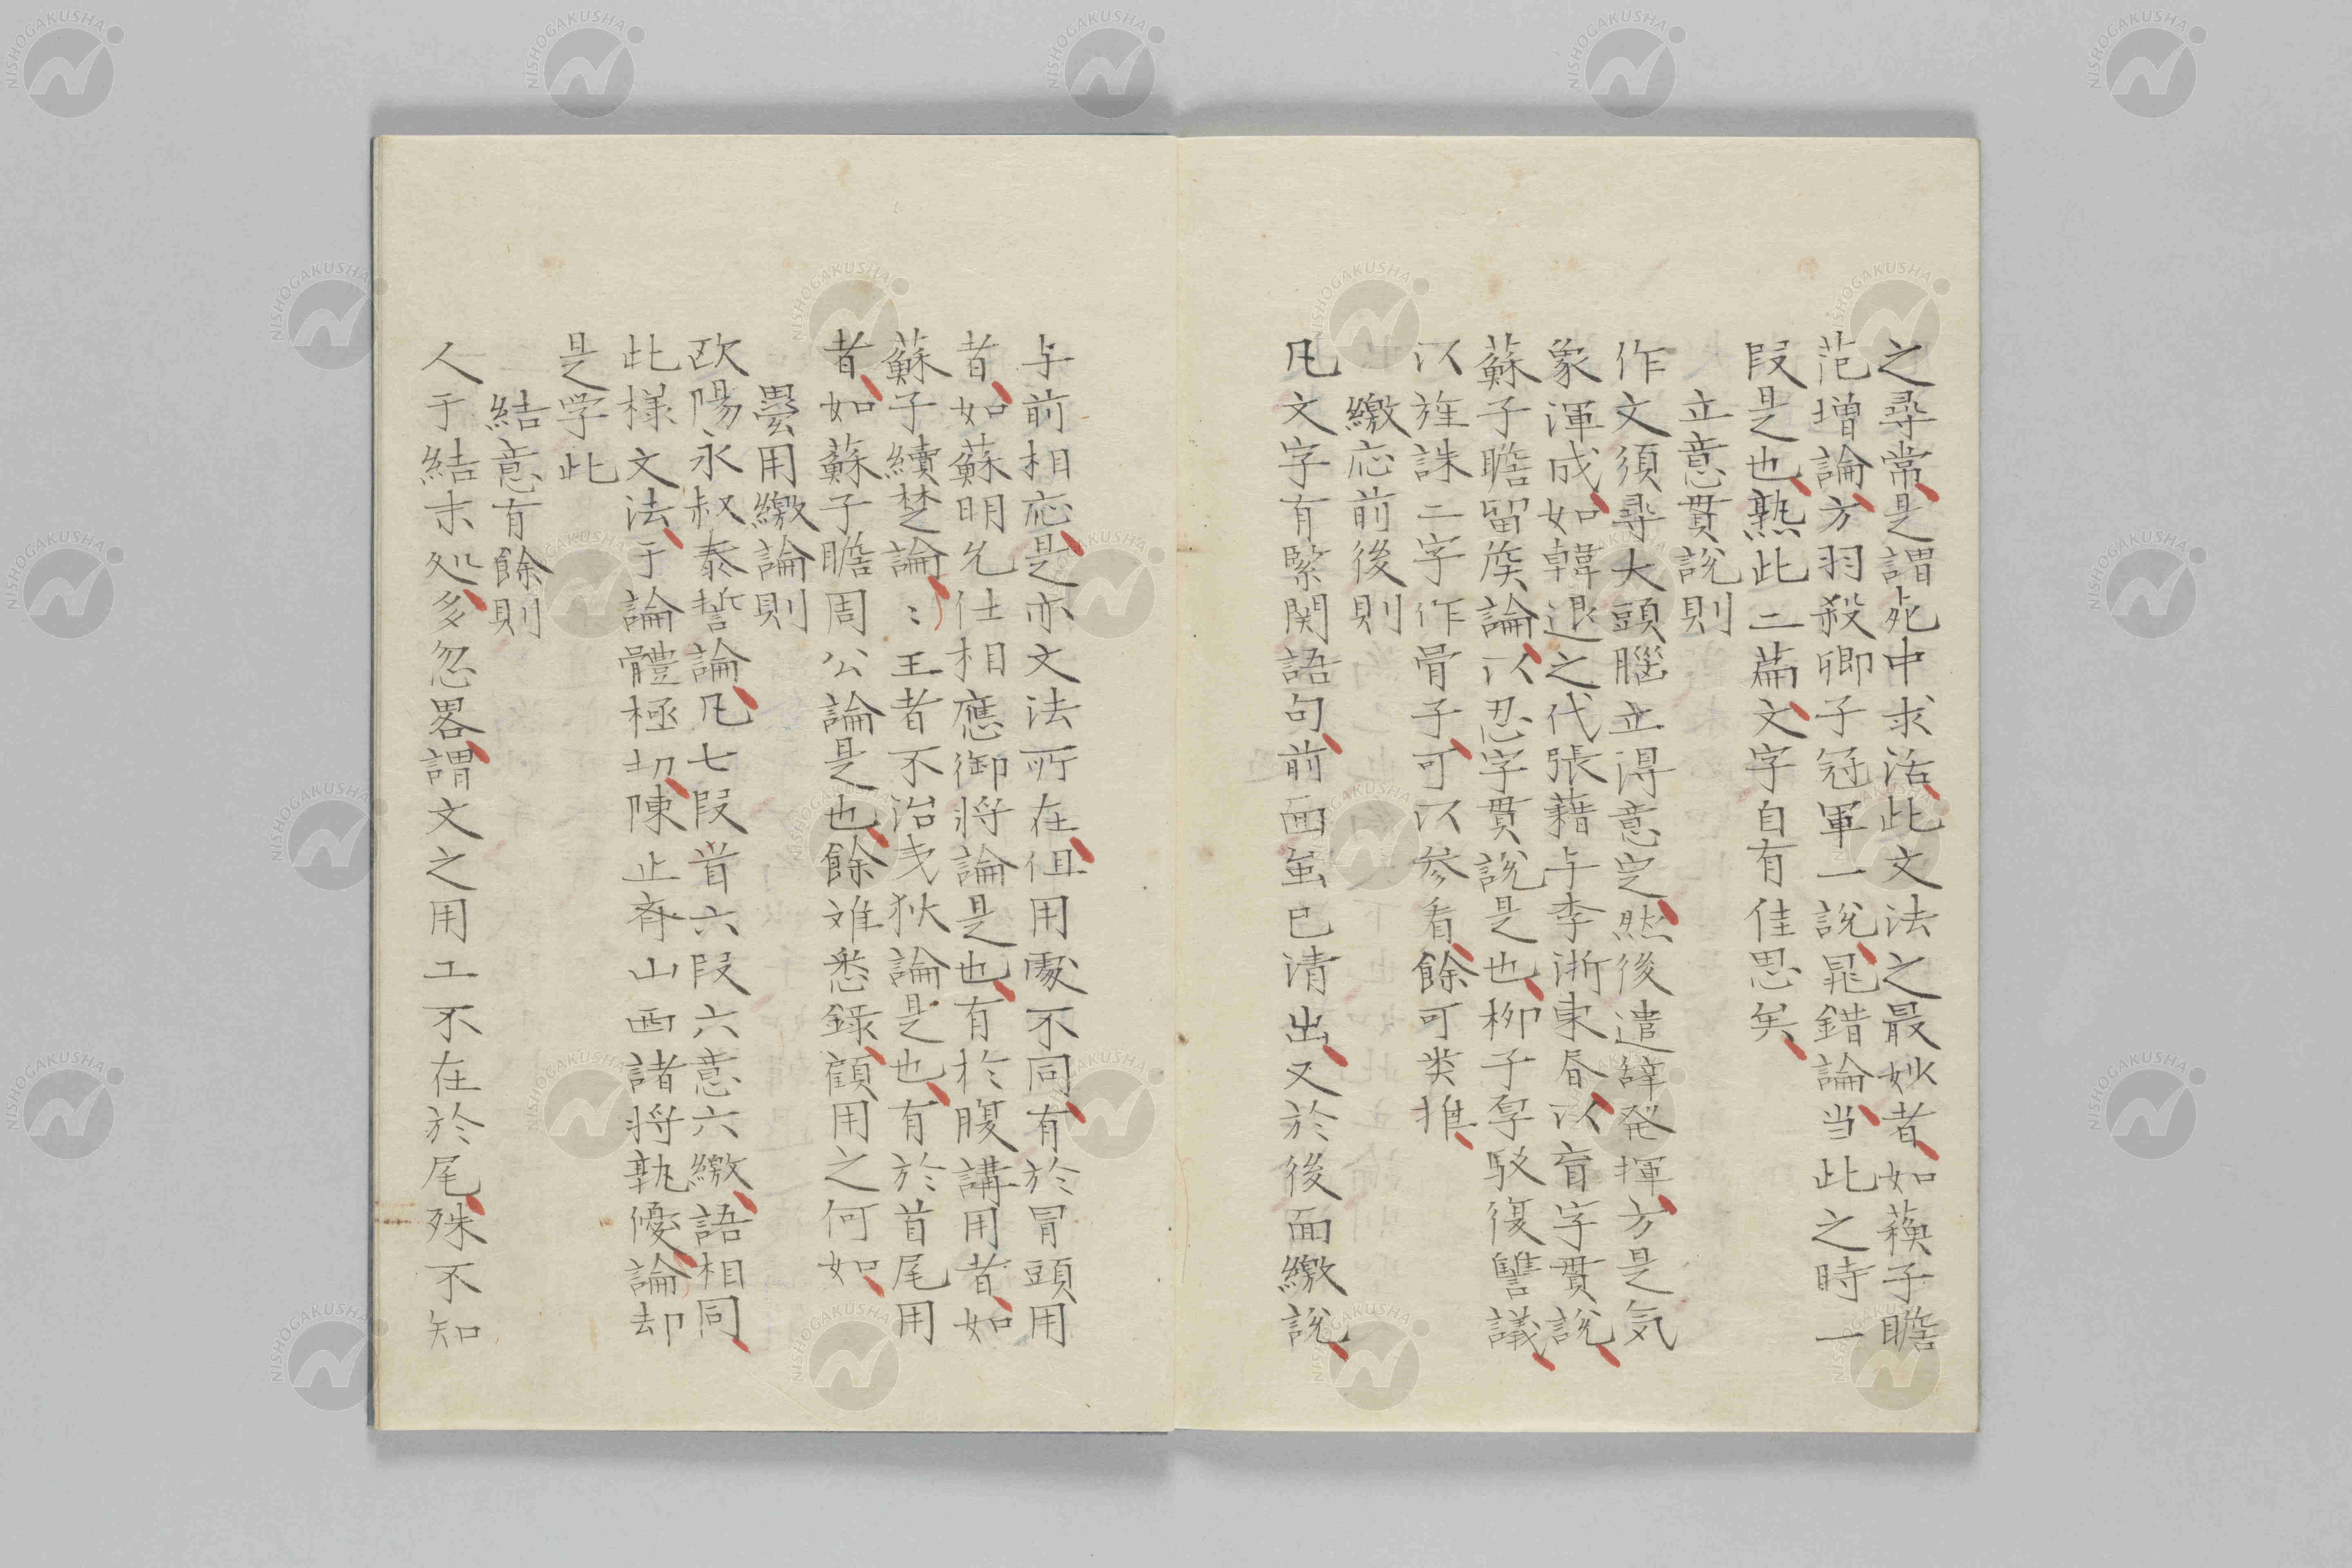 之尋常是謂死中求活此文法之最妙者如蘓子瞻
范増論方羽殺卿子冠軍一說晁錯論当此之時一
段是也熟此二篇文字自有佳思矣
立意貫說則
作文須尋大頭腦立得意定然後遣辞発揮方是気
象渾成如韓退之代張藉与李浙東昏以盲字貫說
蘇子瞻留侯論以忍字貫說是也柳子厚駁復讐議
以旌誅二字作骨子可以参看餘可类推
繳応前後則
凡文字有緊関語句前面虽已清出又於後面繳說
与前相応是亦文法所在但用處不同有於冒頭用
者如蘇明允任相應御將論是也有於腹講用者如
蘇子續楚論〻王者不治夷狄論是也有於首尾用
者如蘇子瞻周公論是也餘难悉録顧用之何如
疉用繳論則
欧陽永叔泰誓論凡七段首六段六意六繳語相同
此様文法于論體極切陳止斉山西諸将孰優論却
是学此
結意有餘則
人于結末処多忽畧謂文之用工不在於尾殊不知
NISHOGAKUSHA